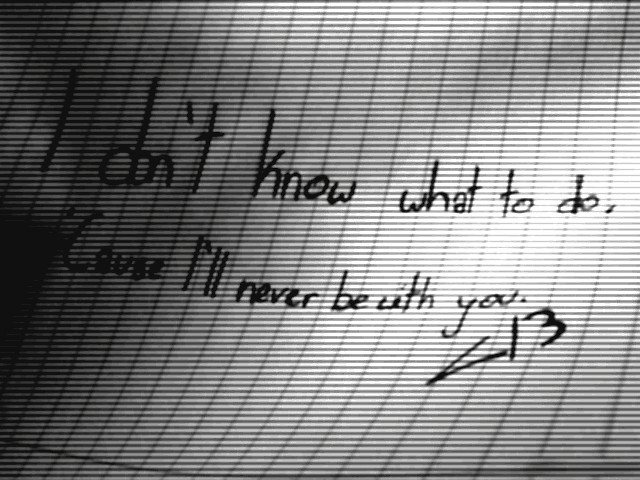 I don't know what to do.
'Cause I'll never be with you.
<13